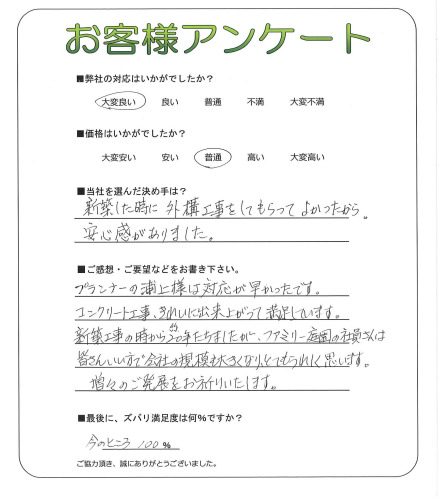 お客様アンケート
■弊社の対応はいかがでしたか？
大変良い 良い 普通 不満 大変不満
■価格はいかがでしたか？
大変安い 安い 普通 高い 大変高い
■当社を選んだ決め手は？
新築した時に外構工事をしてもらってよかったから。
安心感がありました。
■ご感想・ご要望などをお書き下さい。
プランナーの浦上様は対応が早かったです。
コンクリート工事、きれいに出来上がって満足しています。
新築工事の時から30年たちましたが、ファミリー庭園の社員さんは
皆さんいい方で会社の規模も大きくなり、とてもうれしく思います。
増々のご発展をお祈りいたします。
■最後に、ズバリ満足度は何%ですか？
今のところ 100 %
ご協力頂き、誠にありがとうございました。